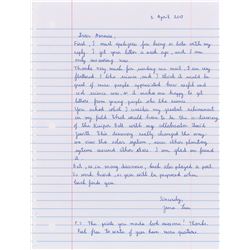 2 April 2013
Dear
First, I must apologise for being so late with my
reply. I got your letter a week ago, and I am
only answering now.
Thanks very much for writing me mail. I am very
flattered. I like science, and I think it would be
great if more people appreciated how useful and
cool science was, so it makes me happy to get
letters from young people who like science.
You asked what I consider my greatest achievement
in my field. That would have to be the co-discovery
of the Kuiper Belt with my collaborator David
Jewitt. This discovery really changed the way
we view the solar system, and other planetary
systems around other stars. I am glad we found
it.
But, as in many discoveries, luck also played a part.
So work hard, so you will be prepared when
luck finds you.
Sincerely,
Jane Luu
P.S. The points you made both awesome! Thanks.
Feel free to write if you have more questions.